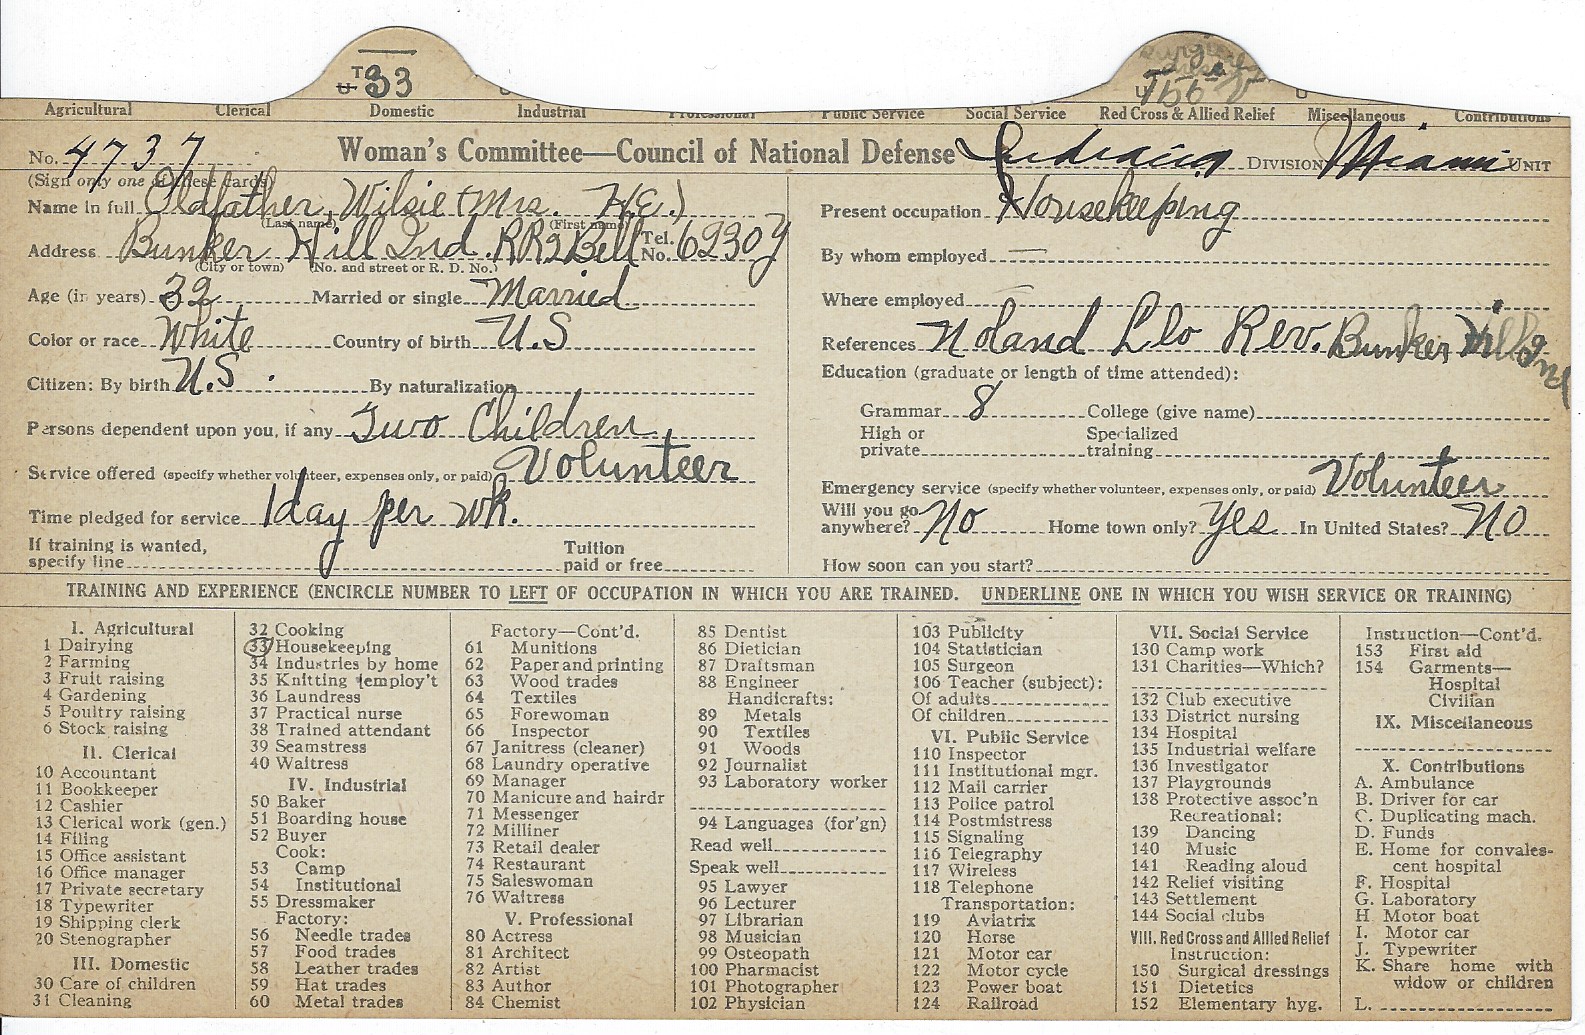 T
U 33
Agricultural Clerical Domestic Industrial Professional Public Service Social Service Red Cross & Allied Relief Miscellaneous Contributions
No. 4737 Woman's Committee—Council of National Defense Indiana DIVISION Miami UNIT
(Sign only one of these cards)
Name in full Oldfather, Wilsie (Mrs. H.E.)
(Last name) (First name)
Address Bunker Hill Ind. RR2 Bell Tel. No. 6230y
(City or town) (No. and street or R. D. No.)
Age (in years) 32 Married or single Married
Color or race White Country of birth U.S
Citizen: By birth U.S. By naturalization
Persons dependent upon you, if any Two Children
Service offered (specify whether volunteer, expenses only, or paid) Volunteer
Time pledged for service 1 day per wk.
If training is wanted, specify line Tuition paid or free
Present occupation Housekeeping
By whom employed —
Where employed
References Noland Leo Rev. Bunker Hill Ind
Education (graduate or length of time attended):
Grammar 8 College (give name)
High or private Specialized training
Emergency service (specify whether volunteer, expenses only, or paid) Volunteer
Will you go anywhere? No Home town only? Yes In United States? NO
How soon can you start?
TRAINING AND EXPERIENCE (ENCIRCLE NUMBER TO LEFT OF OCCUPATION IN WHICH YOU ARE TRAINED. UNDERLINE ONE IN WHICH YOU WISH SERVICE OR TRAINING)
I. Agricultural
1 Dairying
2 Farming
3 Fruit raising
4 Gardening
5 Poultry raising
6 Stock raising
II. Clerical
10 Accountant
11 Bookkeeper
12 Cashier
13 Clerical work (gen.)
14 Filing
15 Office assistant
16 Office manager
17 Private secretary
18 Typewriter
19 Shipping clerk
20 Stenographer
III. Domestic
30 Care of children
31 Cleaning
32 Cooking
33 Housekeeping
34 Industries by home
35 Knitting (employ't
36 Laundress
37 Practical nurse
38 Trained attendant
39 Seamstress
40 Waitress
IV. Industrial
50 Baker
51 Boarding house
52 Buyer
Cook:
53 Camp
54 Institutional
55 Dressmaker
Factory:
56 Needle trades
57 Food trades
58 Leather trades
59 Hat trades
60 Metal trades
Factory—Cont'd.
61 Munitions
62 Paper and printing
63 Wood trades
64 Textiles
65 Forewoman
66 Inspector
67 Janitress (cleaner)
68 Laundry operative
69 Manager
70 Manicure and hairdr
71 Messenger
72 Milliner
73 Retail dealer
74 Restaurant
75 Saleswoman
76 Waitress
V. Professional
80 Actress
81 Architect
82 Artist
83 Author
84 Chemist
85 Dentist
86 Dietician
87 Draftsman
88 Engineer
Handicrafts:
89 Metals
90 Textiles
91 Woods
92 Journalist
93 Laboratory worker
94 Languages (for'gn)
Read well
Speak well
95 Lawyer
96 Lecturer
97 Librarian
98 Musician
99 Osteopath
100 Pharmacist
101 Photographer
102 Physician
103 Publicity
104 Statistician
105 Surgeon
106 Teacher (subject):
Of adults
Of children
VI. Public Service
110 Inspector
111 Institutional mgr.
112 Mail carrier
113 Police patrol
114 Postmistress
115 Signaling
116 Telegraphy
117 Wireless
118 Telephone
Transportation:
119 Aviatrix
120 Horse
121 Motor car
122 Motor cycle
123 Power boat
124 Railroad
VII. Social Service
130 Camp work
131 Charities—Which?
132 Club executive
133 District nursing
134 Hospital
135 Industrial welfare
136 Investigator
137 Playgrounds
138 Protective assoc'n
Recreational:
139 Dancing
140 Music
141 Reading aloud
142 Relief visiting
143 Settlement
144 Social clubs
VIII. Red Cross and Allied Relief
Instruction:
150 Surgical dressings
151 Dietetics
152 Elementary hyg.
Instruction—Cont'd.
153 First aid
154 Garments—
Hospital
Civilian
IX. Miscellaneous
X. Contributions
A. Ambulance
B. Driver for car
C. Duplicating mach.
D. Funds
E. Home for convales-
cent hospital
F. Hospital
G. Laboratory
H. Motor boat
I. Motor car
J. Typewriter
K. Share home with
widow or children
L.